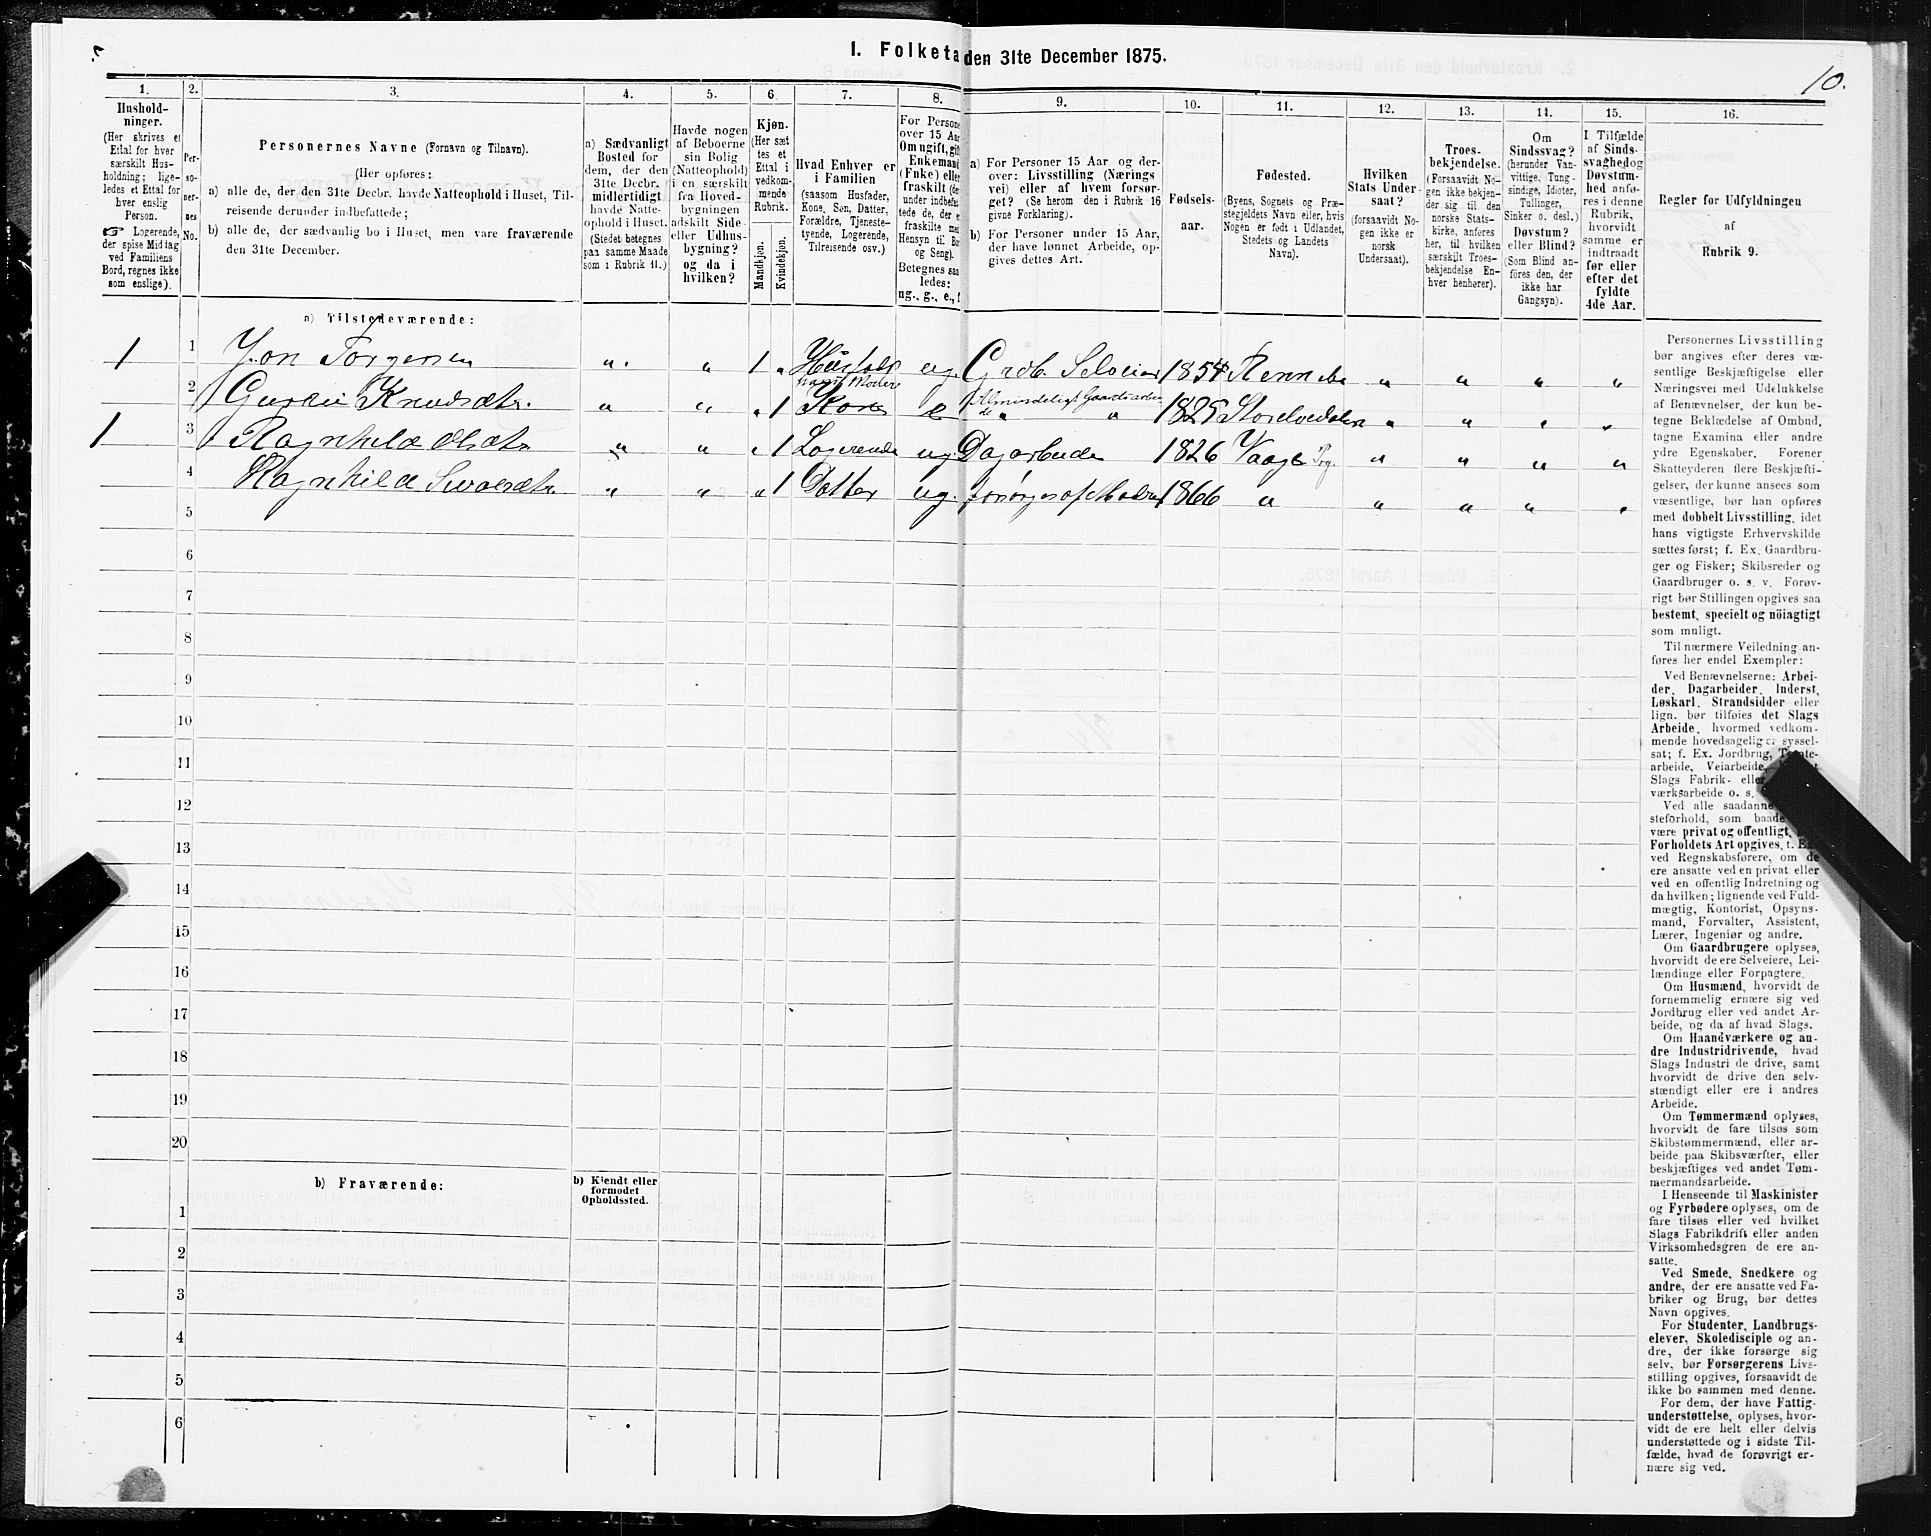 I. Folketa den 31te December 1875.
10.
1. 2. 3. 4. 5. 6. 7. 8. 9. 10. 11. 12. 13. 14. 15. 16.
Hushold-
ninger.
(Her skrives et
Ettal for hver
særskilt Hus-
holdning; lige-
ledes et Ettal for
hver enslig
Person.
☞ Logerende,
der spise Middag
ved Familiens
Bord, regnes ikke
som enslige).
Per-
so-
ner-
nes
No.
Personernes Navne (Fornavn og Tilnavn).
(Her opføres:
a) alle de, der den 31te Decbr. havde Natteophold i Huset, Til-
reisende derunder indbefattede;
b) alle de, der sædvanlig bo i Huset, men vare fraværende
den 31te December.
a) Sædvanligt
Bosted for
dem, der den
31te Decbr.
midlertidigt
havde Natte-
ophold i Huset.
(Stedet betegnes
paa samme Maade
som i Rubrik 11.)
Havde nogen
af Beboerne
sin Bolig
(Natteophold)
i en særskilt
fra Hoved-
bygningen
adskilt Side-
eller Udhus-
bygning?
og da i
hvilken?
Kjøn.
(Her sæt
tes et
Ettal i
vedkom-
mende
Rubrik.
Mandkjøn.
Kvindekjøn.
Hvad Enhver er
i Familien
(saasom Husfader,
Kone, Søn, Datter,
Forældre, Tjeneste-
tyende, Logerende,
Tilreisende osv.)
For Persone
over 15 Aar
Om ugift, gif
Enkemand
(Enke) eller
fraskilt (der
under indbefat
tede de, der er
fraskilte med
Hensyn til Bo
og Seng).
Betegnes saa
ledes:
ug., g., e., f
a) For Personer 15 Aar og der-
over: Livsstilling (Nærings
vei) eller af hvem forsør-
get? (Se herom den i Rubrik 16
givne Forklaring).
b) For Personer under 15 Aar,
der have lønnet Arbeide, op-
gives dettes Art.
Fødsels-
aar.
Fødested.
(Byens, Sognets og Præ-
stegjeldets Navn eller, hvis
Nogen er født i Udlandet,
Stedets og Landets
Navn).
Hvilken
Stats Under-
saat?
(forsaavidt No-
gen ikke er
norsk
Undersaat).
Troes-
bekjendelse.
(Forsaavidt No-
gen ikke bekjen-
der sig til den
norske Stats-
kirke, anføres
her, til hvilken
særskilt Troes-
bekjendelse En-
hver henhører).
Om
Sindssvag?
(herunder Van-
vittige, Tung-
sindige, Idioter,
Tullinger,
Sinker o. desl.)
Døvstum?
eller Blind?
(Som Blind an-
føres den, der
ikke har
Gangsyn).
I Tilfælde
af Sinds-
svaghed og
Døvstum-
hed anfø-
res i denne
Rubrik,
hvorvidt
samme er
indtraadt
før eller
efter det
fyldte
4de Aar.
Regler for Udfyldningen
af
Rubrik 9.
a) Tilstedeværende:
1 1 Jon Torgersen " " 1 " ug. Grdb. Selveier 1854 Rennebo " " " "
havis Moder
2 Knudsdtr. " " " 1 Kone e Almindeligt Gaardsarbeide 1825 " " " "
1 3 Ragnhild Olsdtr " " " 1 Logerende ug. Dagarbeide 1826 Vaage Prg. " " " "
4 Ragnhild Sivertsdtr " " " 1 Datter ug. forsørges af Moderen 1866 " " " " "
5
6
7
8
9
10
11
12
13
14
15
16
17
18
19
20
b) Fraværende:
b) Kjendt eller
formodet
Opholdssted.
1
2
3
4
5
6
Personernes Livsstilling
bør angives efter deres væ-
sentlige Beskjæftigelse eller
Næringsvei med Udelukkelse
af Benævnelser, der kun be-
tegne Beklædelse af Ombud,
tagne Examina eller andre
ydre Egenskaber. Forener
Skatteyderen flere Beskjæfti-
gelser, der kunne ansees som
væsentlige, bør han opføres
med dobbelt Livsstilling, idet
hans vigtigste Erhvervskilde
sættes først; f. Ex. Gaardbru-
ger og Fisker; Skibsreder og
Gaardbruger o. s. v. Forøv-
rigt bør Stillingen opgives saa
bestemt, specielt og nöiagtigt
som muligt.
Til nærmere Veiledning an-
føres her endel Exempler:
Ved Benævnelserne: Arbei-
der, Dagarbeider, Inderst,
Løskarl, Strandsidder eller
lign. bør tilføies det Slags
Arbeide, hvormed vedkom-
mende hovedsagelig er syssel-
sat; f. Ex. Jordbrug, Tomte-
arbeide, Veiarbeide,
Slags Fabrik- eller
værksarbeide o. s.
Ved alle saadanne
steforhold, som baade
være privat og offentligt,
Forholdets Art opgives, f. Ex.
ved Regnskabsførere, om de
ere ansatte ved en privat eller
ved en offentlig Indretning og
da hvilken; lignende ved Fuld-
mægtig, Kontorist, Opsyns-
mand, Forvalter, Assistent,
Lærer, Ingeniør og andre.
Om Gaardbrugere oplyses,
hvorvidt de ere Selveiere, Lei-
lændinge eller Forpagtere.
Om Husmænd, hvorvidt de
fornemmelig ernære sig ved
Jordbrug eller ved andet Ar-
beide, og da af hvad Slags.
Om Haandværkere og an-
dre Industridrivende, hvad
Slags Industri de drive, samt
hvorvidt de drive den selv-
stændigt eller ere i andres
Arbeide.
Om Tømmermænd oplyses,
hvorvidt de fare tilsøs som
Skibstømmermænd, eller ar-
beide paa Skibsværfter, eller
beskjæftiges ved andet Tøm-
mermandsarbeide.
I Henseende til Maskinister
og Fyrbødere oplyses, om de
fare tilsøs eller ved hvilket
Slags Fabrikdrift eller anden
Virksomhedsgren de ere an-
satte.
Ved Smede, Snedkere og
andre, der ere ansatte ved Fa-
briker og Brug, bør dettes
Navn opgives.
For Studenter, Landbrugs-
elever, Skoledisciple og an-
dre, der ikke forsørge sig
selv, bør Forsørgerens Livs-
stilling opgives, forsaavidt de
ikke bo sammen med denne.
For dem, der have Fattig-
understøttelse, oplyses, hvor-
vidt de ere helt eller delvis
understøttede og i sidste Til-
fælde, hvad de forøvrigt er-
nære sig ved.